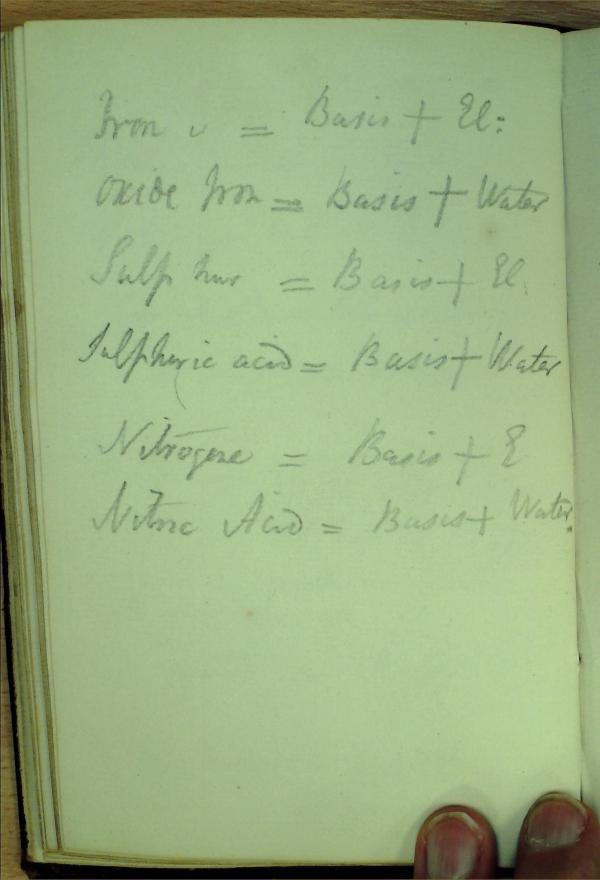 Iron = Basis + El:
Oxide Iron = Basis + Water
Sulphur = Basis + El.
Sulphuric acid = Basis + Water
Nitrogene = Basis + E
Nitric Acid = Basis + Water.